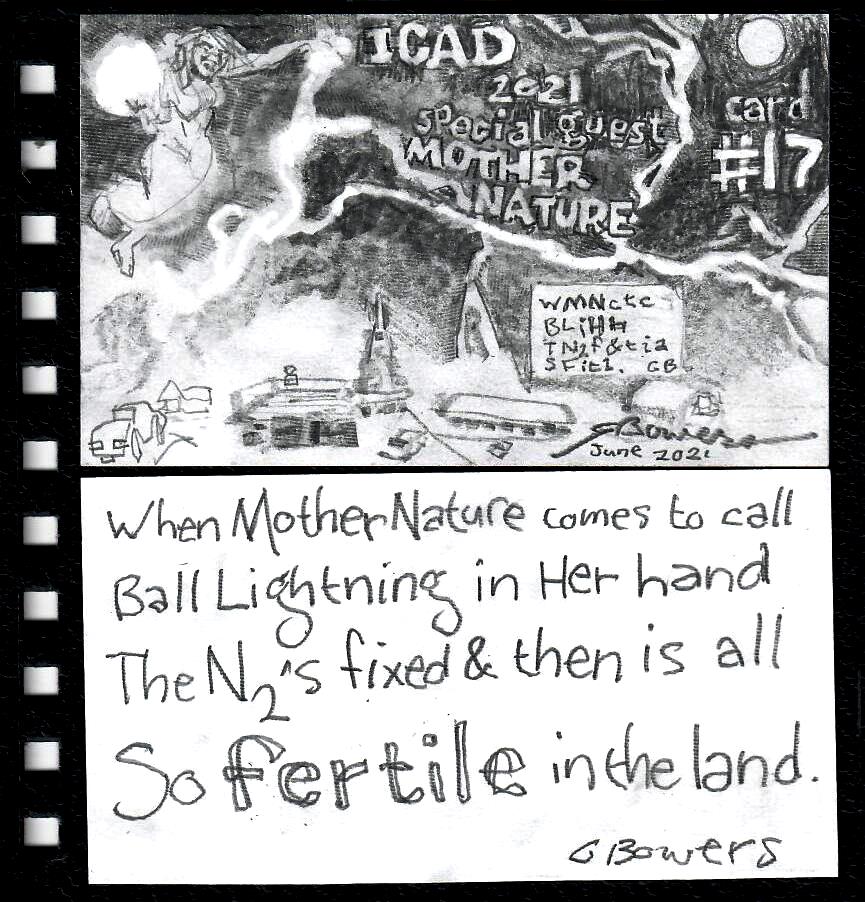 ICAD
2021
special guest
MOTHER
NATURE
card
#17
WMNctc
BLiHH
TN2f&tia
SFitl. GB
GBowers
June 2021
When Mother Nature comes to call
Ball Lightning in Her hand
The N2's fixed & then is all
So fertile in the land.
G Bowers